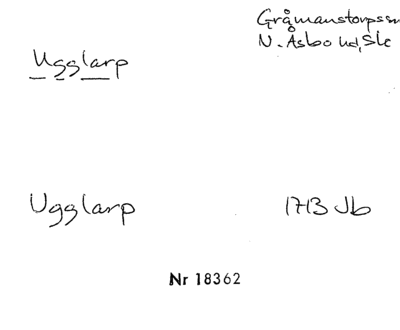 Gråmanstorps sn
N. Åsbo hd, Sk
Ugglarp
Ugglarp 1713 Jb
Nr 18362